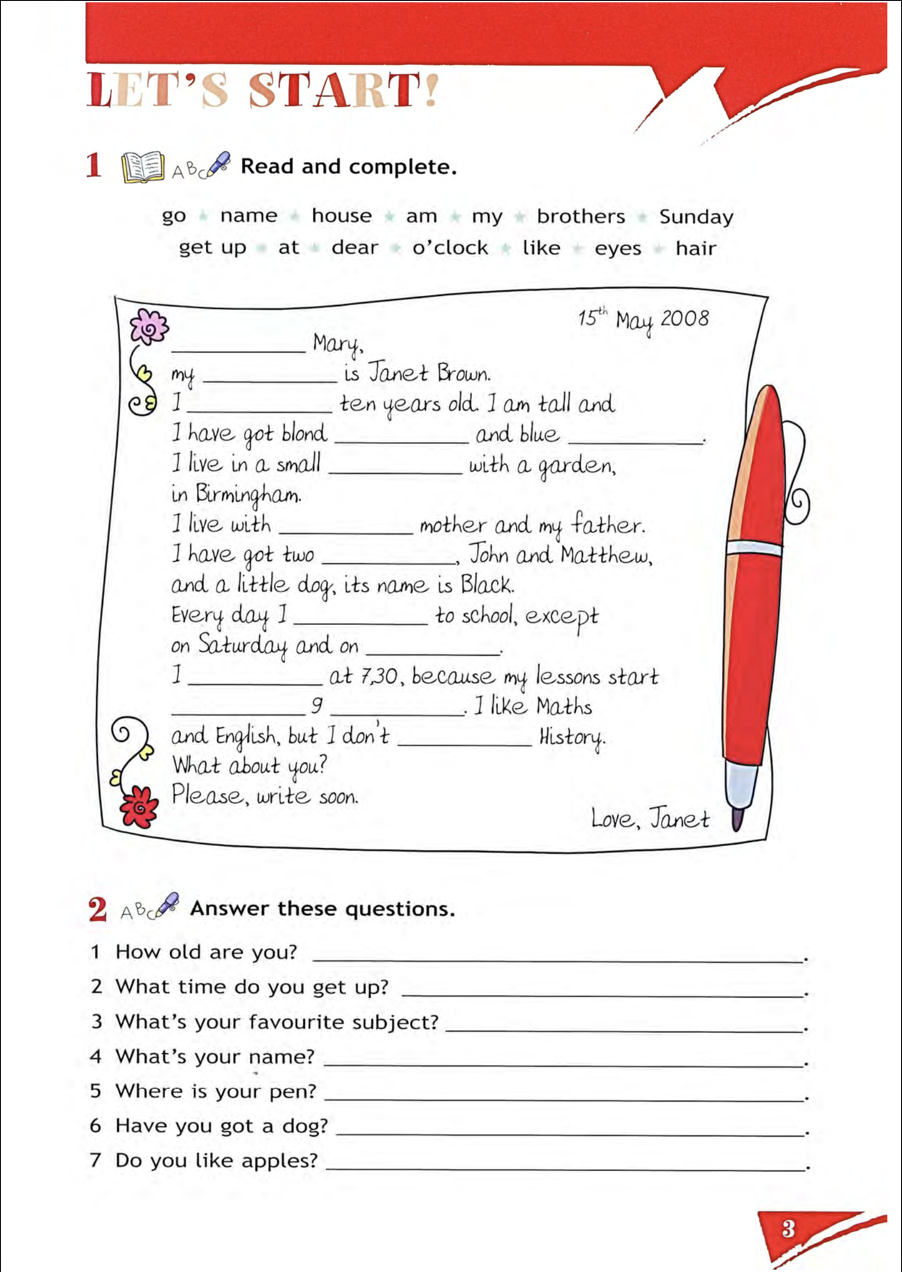 LET'S START!
1 ABC Read and complete.
go ★ name ★ house ★ am ★ my ★ brothers ★ Sunday
get up ★ at ★ dear ★ o'clock ★ like ★ eyes ★ hair
15th May 2008
____________ Mary,
my ____________ is Janet Brown.
I ____________ ten years old. I am tall and
I have got blond ____________ and blue ____________.
I live in a small ____________ with a garden,
in Birmingham.
I live with ____________ mother and my father.
I have got two ____________, John and Matthew,
and a little dog, its name is Black.
Every day I ____________ to school, except
on Saturday and on ____________.
I ____________ at 7,30, because my lessons start
____________ 9 ____________. I like Maths
and English, but I don't ____________ History.
What about you?
Please, write soon.
Love, Janet
2 ABC Answer these questions.
1 How old are you? ____________.
2 What time do you get up? ____________.
3 What's your favourite subject? ____________.
4 What's your name? ____________.
5 Where is your pen? ____________.
6 Have you got a dog? ____________.
7 Do you like apples? ____________.
3